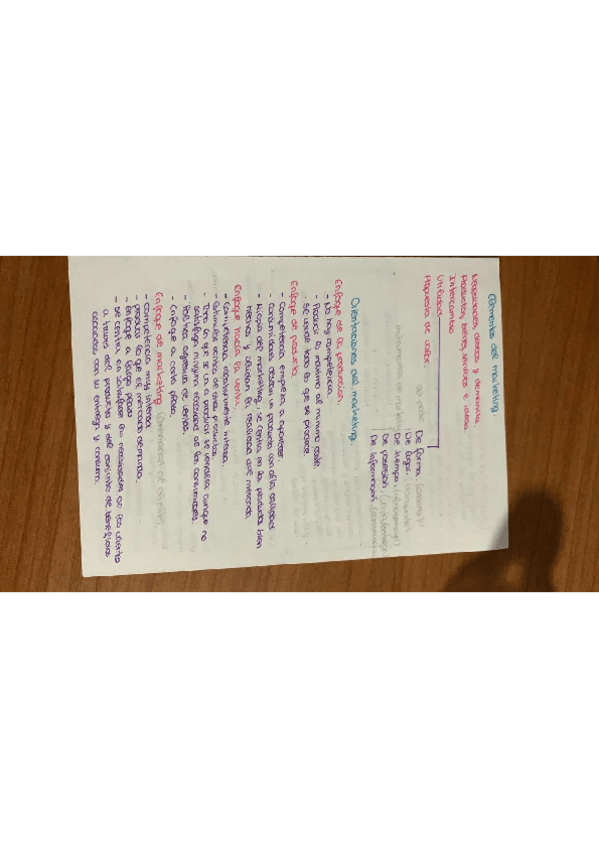 Elementos del marketing.
Necesidades, deseos y demanda.
Productos, bienes, servicios e ideas
Intercambio
Utilidad
De forma.
De lugar.
De tiempo.
De posesión
De información
Propuesta de valor.
Orientaciones del marketing.
Enfoque de la producción.
- No hay competencia.
- Producir lo máximo al mínimo coste.
- Se vende todo lo que se produce.
Enfoque de producto
- Competencia empieza a aparecer.
- Consumidores desean un producto con alta calidad
- Miopía del marketing, se centra en los productos bien
hechos y olvidan la realidad del mercado.
Enfoque hacia la venta.
- Competencia medianamente intensa.
- Estímulos acerca de otros productos.
- Todo lo que se va a producir se venderá aunque no
satisfaga ninguna necesidad de los consumidores.
- Política agresiva de ventas.
- Enfoque a corto plazo.
Enfoque de marketing
- Competencia muy intensa
- Producir lo que el mercado demanda.
- Enfoque a largo plazo
- Se centra en satisfacer las necesidades de los clientes
a través del producto y del conjunto de beneficios
asociados con su entrega y consumo.